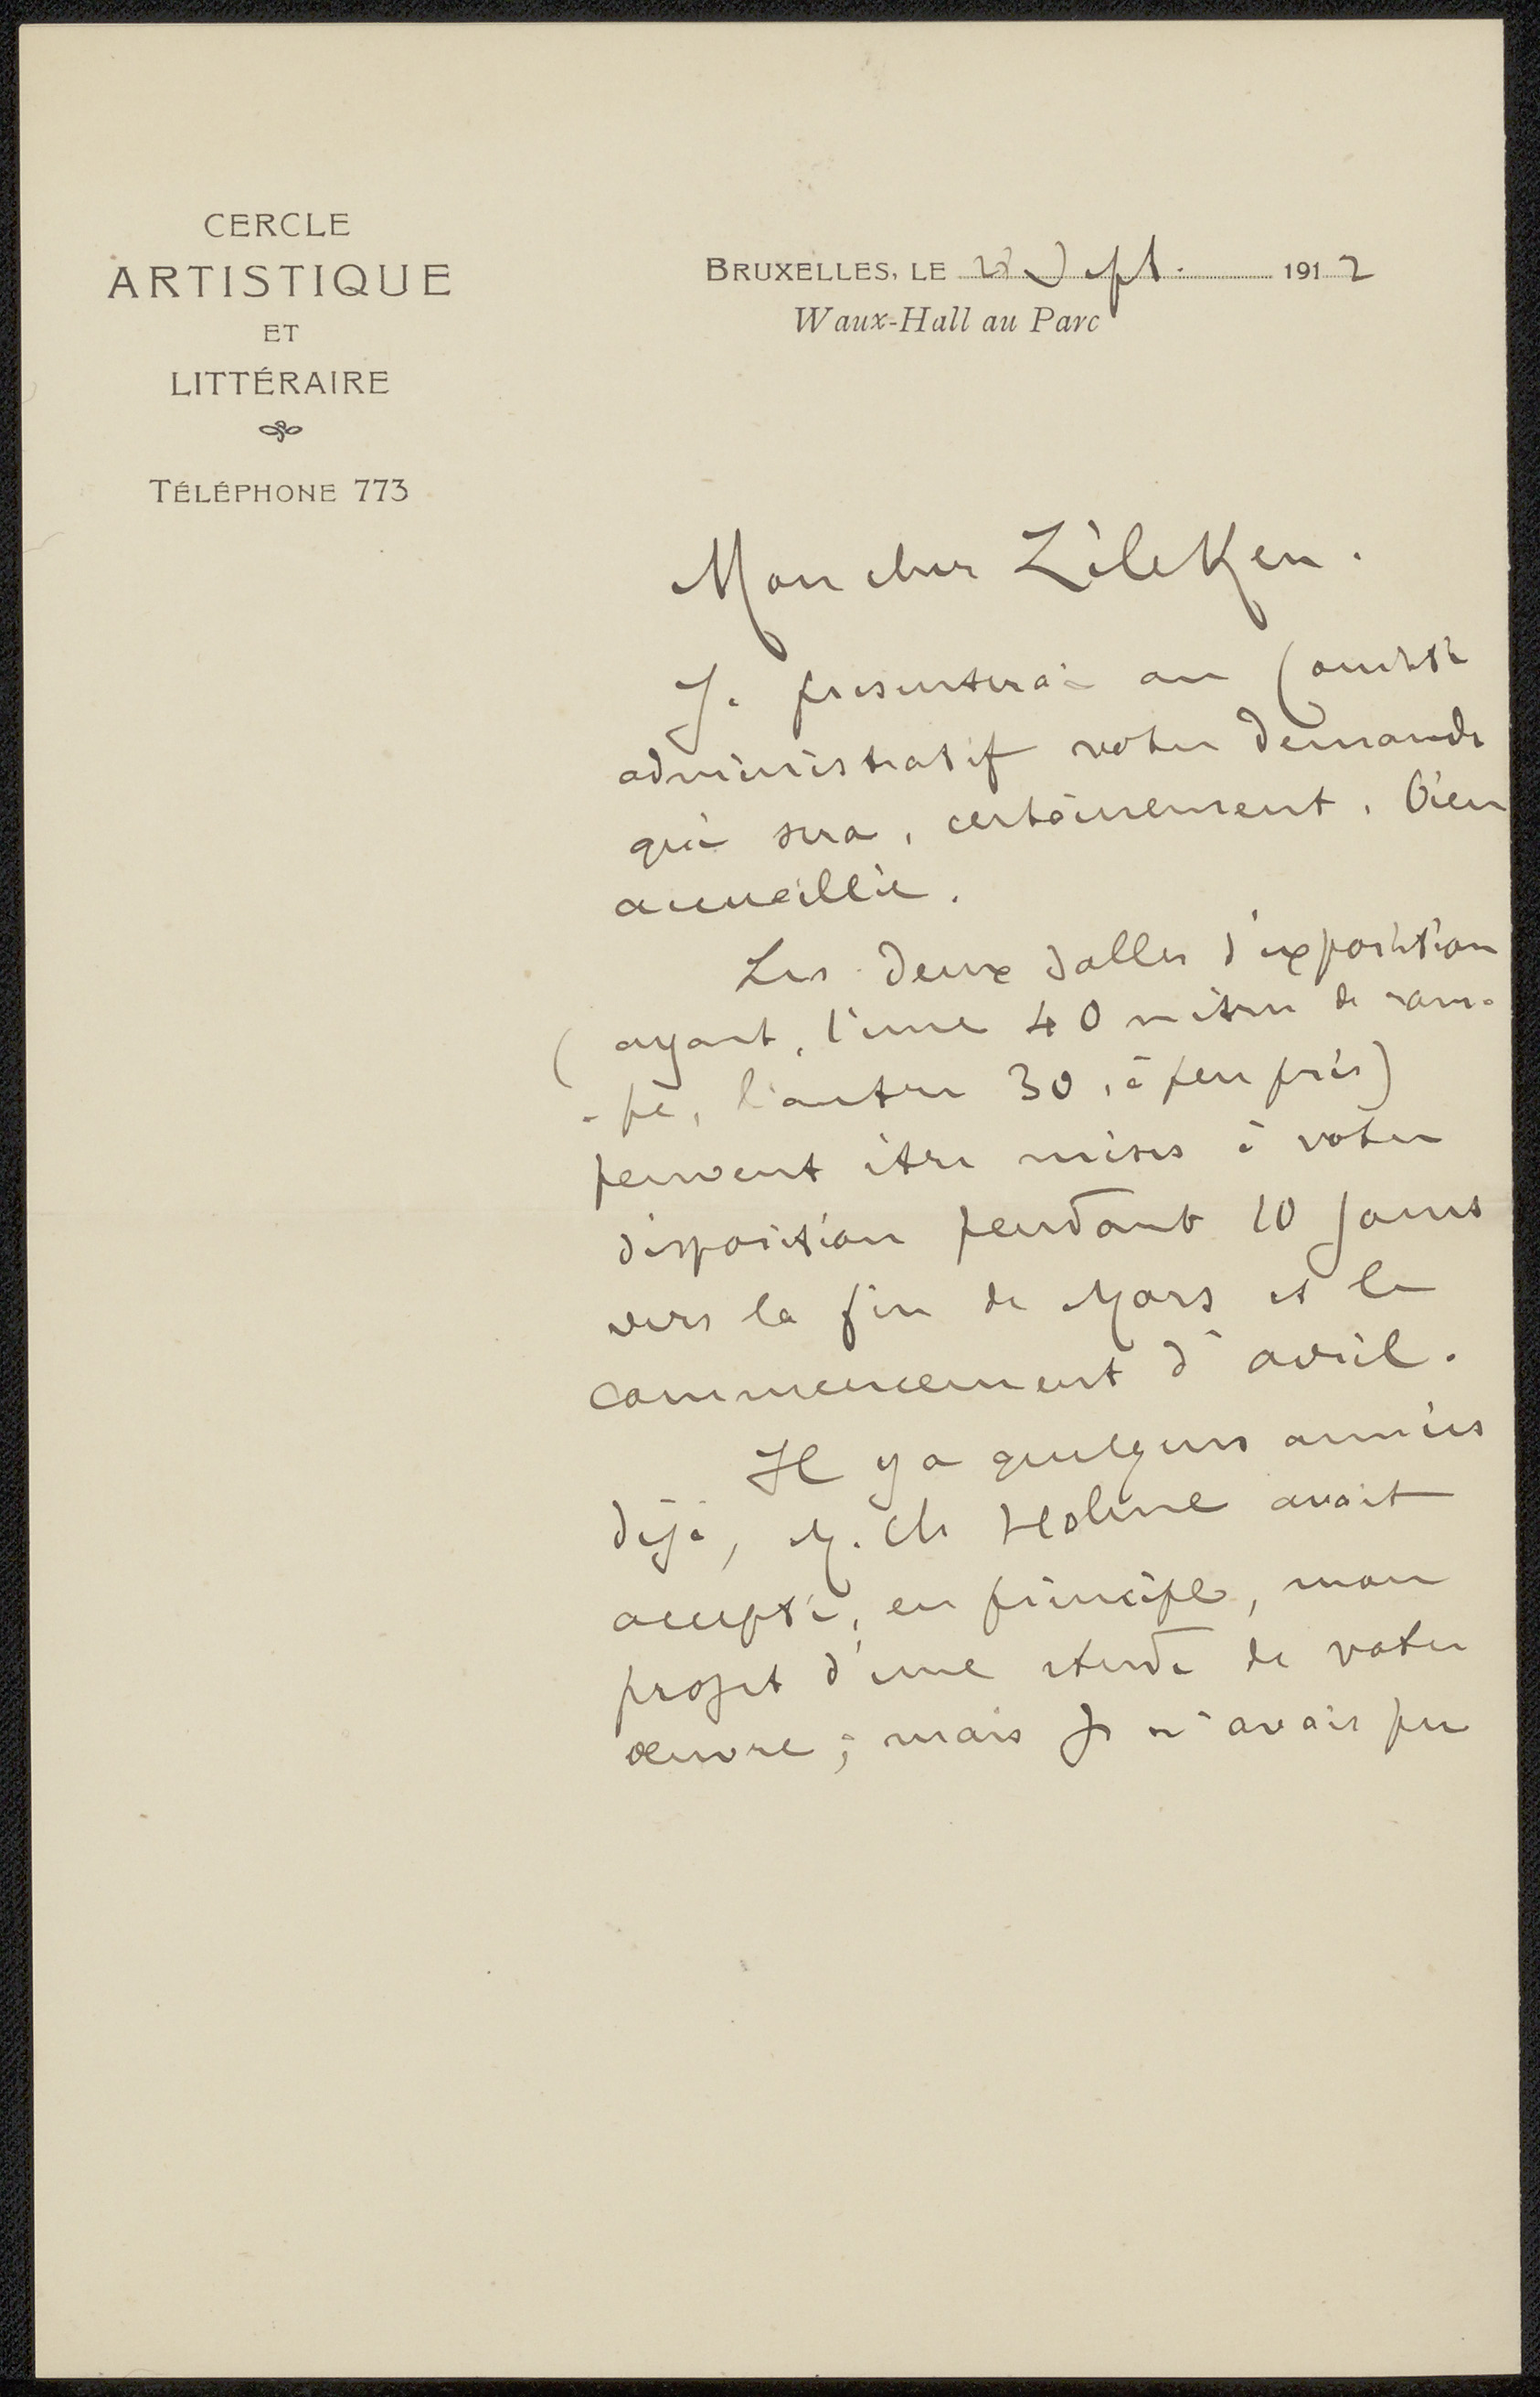 CERCLE
ARTISTIQUE
ET
LITTÉRAIRE
TÉLÉPHONE 773
BRUXELLES, LE 28 Sept. 1912
Waux-Hall au Parc
Mon cher Zilcken.
Je présenterai au Comité
administratif votre demande
qui sera, certainement, bien
accueillie.
Les deux salles d'exposition
(ayant, l'une 40 mètres de ram-
-pe, l'autre 30, à peu près)
peuvent être mises à votre
disposition pendant 10 jours
vers la fin de Mars et le
commencement d'avril.
Il y a quelques années
déjà, M. Ch Holme avait
accepté, en principe, mon
projet d'une étude de votre
œuvre; mais je n'avais pu